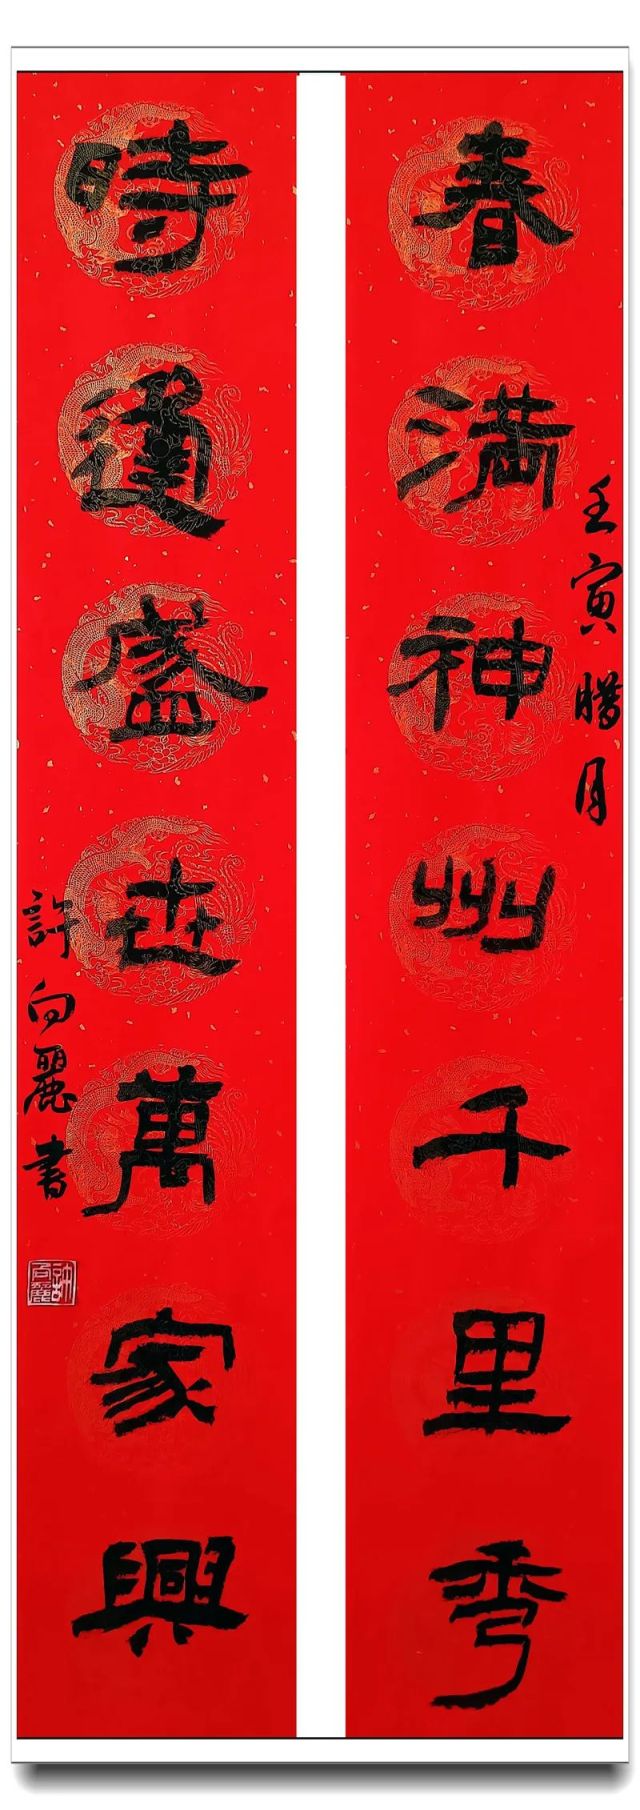 春满神州千里秀
壬寅腊月
時逢盛世萬家興
許向麗書